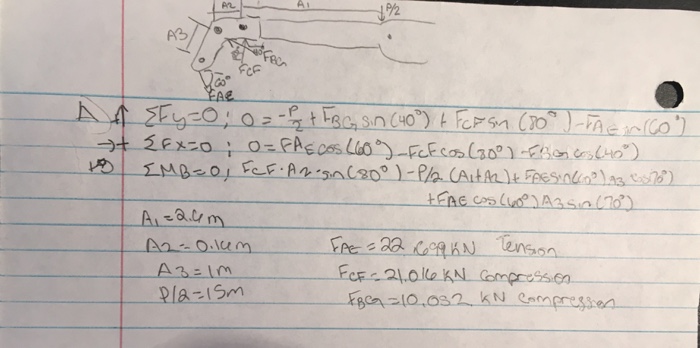 A2 A1 P/2
A3
FBG
FCF
60°
FAE
A ↑ ΣFy=0; 0 = -P/2 + FBG sin(40°) + FCF sin(80°) - FAE sin(60°)
→+ ΣFx=0; 0 = FAE cos(60°) - FCF cos(80°) - FBG cos(40°)
ΣMB=0; FCF·A2·sin(80°) - P/2 (A1+A2) + FAE sin(60°) A3 cos(70°)
+ FAE cos(60°) A3 sin(70°)
A1 = 2.4m
A2 = 0.1cm FAE = 22.699 KN Tension
A3 = 1m FCF = 21.016 KN Compression
P/2 = 15m FBG = 10.032 KN compression